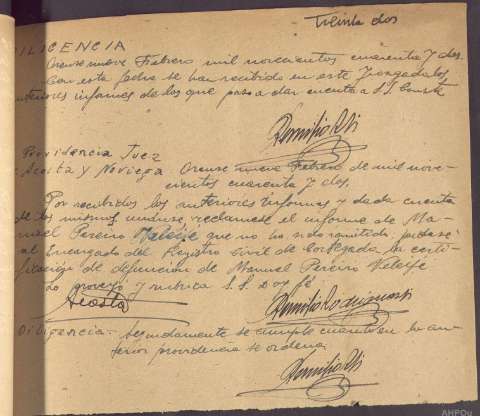 Treinta dos
DILIGENCIA
Orense nueve Febrero mil novecientos cuarenta y dos.
Con esta fecha se han recibido en este Juzgado los
anteriores informes de los que paso a dar cuenta a S.S. Consta
Providencia Juez
Acosta y Noriega Orense nueve Febrero de mil nove-
cientos cuarenta y dos.
Por recibidos los anteriores informes y dada cuenta
de los mismos unanse, reclamese el informe de Ma-
nuel Pereiro que no ha sido remitido, pidase
al Encargado del Registro Civil de Cortegada la certi-
ficación de defunción de Manuel Pereiro
Lo proveyó y rubrica S.S. Doy fé
Acosta
Diligencia.- Seguidamente se cumple cuanto en la an-
terior providencia se ordena.
AHPOu